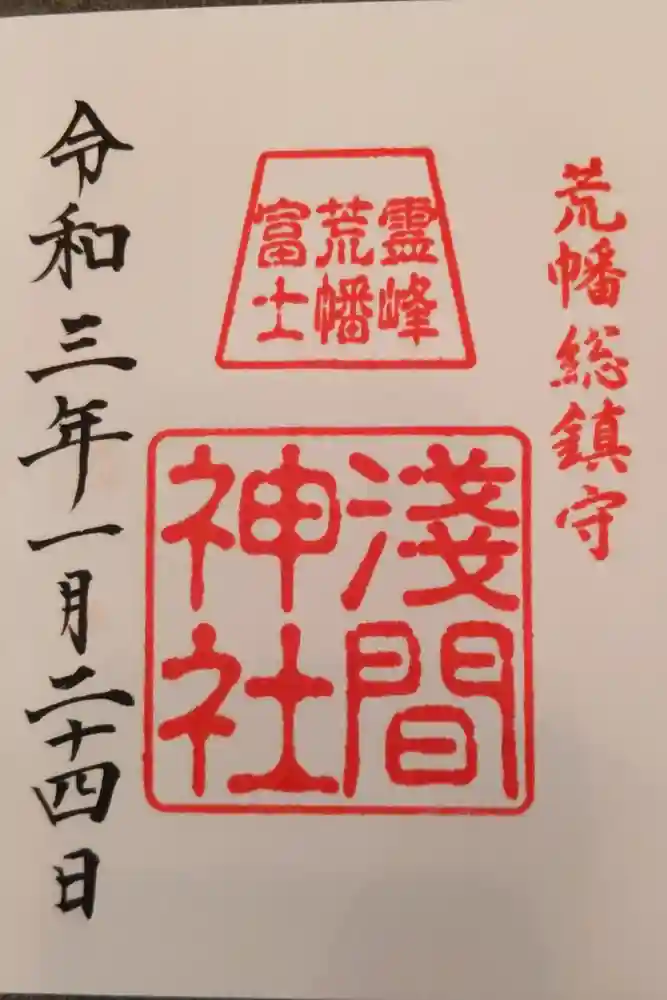 荒幡総鎮守
霊峰
荒幡
富士
淺間
神社
令和三年一月二十四日